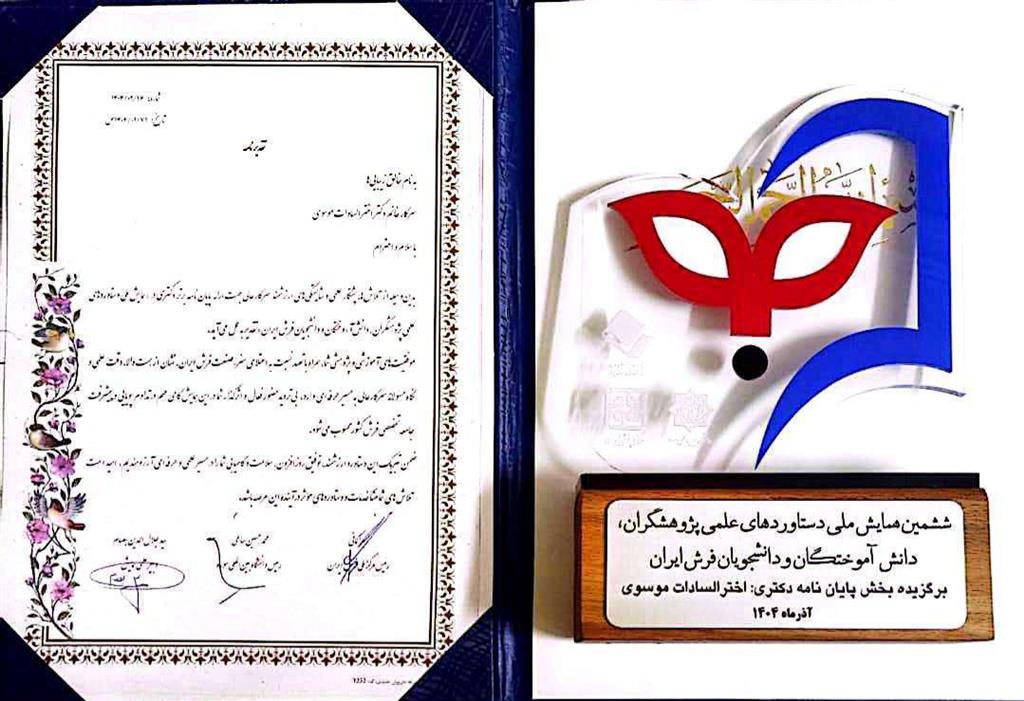 شماره: ۱۴۰۴/۰۹/۱۶
تقدیرنامه
به نام خالق زیبایی‌ها
سرکار خانم دکتر اخترالسادات موسوی
با سلام و احترام
بدین‌وسیله از تلاش‌های پیگیر علمی و شایستگی‌های ارزشمند سرکارعالی جهت ارائه پایان نامه برتر دکتری در همایش ملی دستاوردهای
علمی پژوهشگران، دانش آموختگان و دانشجویان فرش ایران، تقدیر به عمل می‌آید.
موفقیت‌های آموزشی و پژوهشی شما، همراه با تعهد نسبت به اعتلای هنر، صنعت فرش ایران، نشان از همت والا، دقت علمی و
نگاه مسئولانه سرکارعالی به مسیر حرفه‌ای دارد. بی‌تردید حضور فعال و اثرگذار شما در این همایش گامی مهم در تداوم پویایی و پیشرفت
جامعه تخصصی فرش کشور محسوب می‌شود.
ضمن تبریک این دستاورد ارزشمند، توفیق روزافزون، سلامت و کامیابی شما را در مسیر علمی و حرفه‌ای آرزومندیم. امید است
تلاش‌های شما منشا خدمات و دستاوردهای موثر در آینده این عرصه باشد.
رئیس مرکز ملی فرش ایران
رئیس دانشگاه بین المللی
سید جلال الدین بصام
1252
بسم الله الرحمن الرحیم
ششمین همایش ملی دستاوردهای علمی پژوهشگران،
دانش آموختگان و دانشجویان فرش ایران
برگزیده بخش پایان نامه دکتری: اخترالسادات موسوی
آذرماه ۱۴۰۴